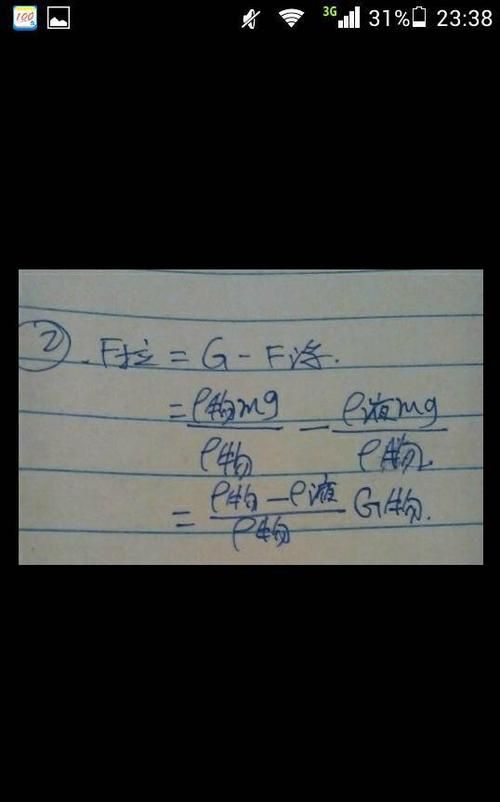 100
3G 31% 23:38
② . F拉 = G - F浮.
= ρ物mg/ρ物 - ρ液mg/ρ物
= ρ物-ρ液/ρ物 G物.